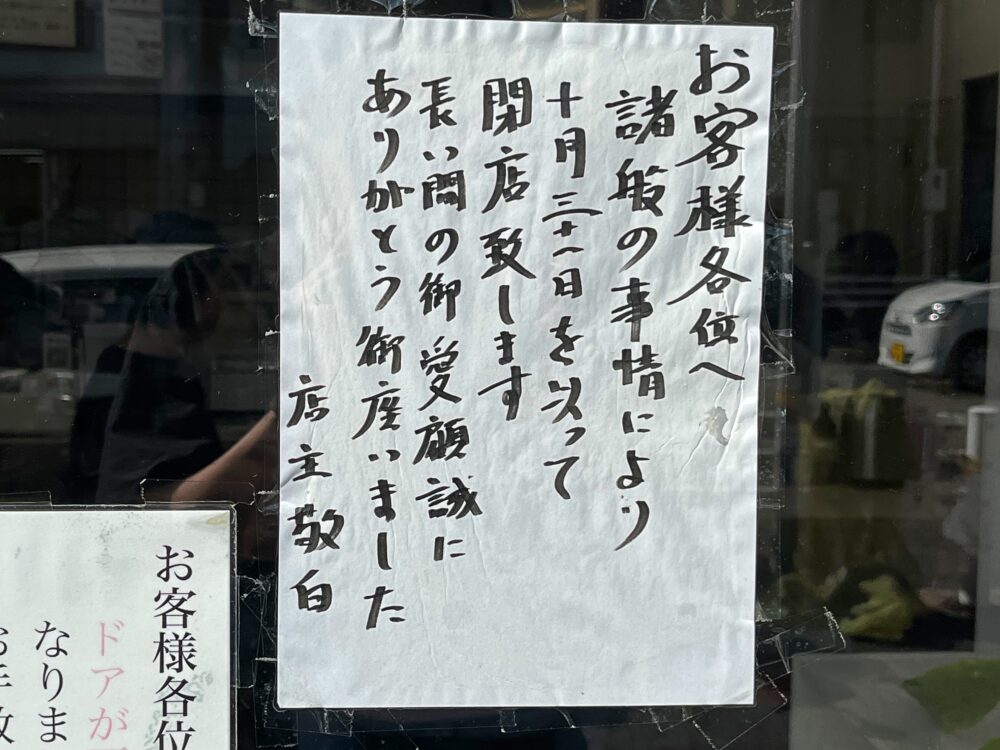 お客様各位へ
諸般の事情により
十月三十一日を以って
閉店致します
長い間の御愛顧誠に
ありがとう御座いました
店主敬白
お客様各位
ドアが
なりま